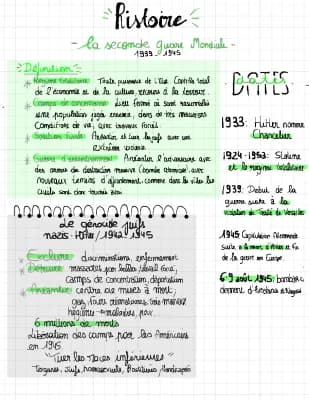 Histoire
- La seconde guerre Mondiale -
1939 1945
Définition :
* Régime totalitaire : Toute puissance de l'État. Contrôle total
de l'économie et de la culture, donnée à la terreur.
* Camps de concentration : lieu fermé où sont rassemblés
une population jugée ennemie, dans de très mauvaises
Conditions de vie, avec travaux forcés.
* Solution finale : Anéantir et tuer les juifs avec une
extrême violence.
* Guerre d'anéantissement : Anéantir l'adversaire avec
des armes de destruction massive (bombe atomique) avec
nouveaux terrains d'affrontement, comme dans la ville. Les
civils sont donc touchés
Le génocide juifs
nazis - Hitler / 1942 - 1945
Exclure : discriminations, enfermement
massacrés par balles
camps de concentration, déportation
centre de mises à mort :
gaz, fours crématoires, très mauvaise
hygiène → maladies
6 millions de morts
Libération des camps par les Américains
en 1945.
"Tuer les races inférieures"
Tziganes, Juifs, homosexuels, handicapés
DATES
1933 : Hitler nommé
Chancelier
1924-1953 : Staline
et le régime totalitaire
1939 : Début de la
guerre suite à la
violation du Traité de Versailles
1945 Capitulation Allemande
Suite à la mort d'Hitler et Fin
de la guerre en Europe.
6-9 août 1945 : bombes
d'Hiroshima et Nagasaki